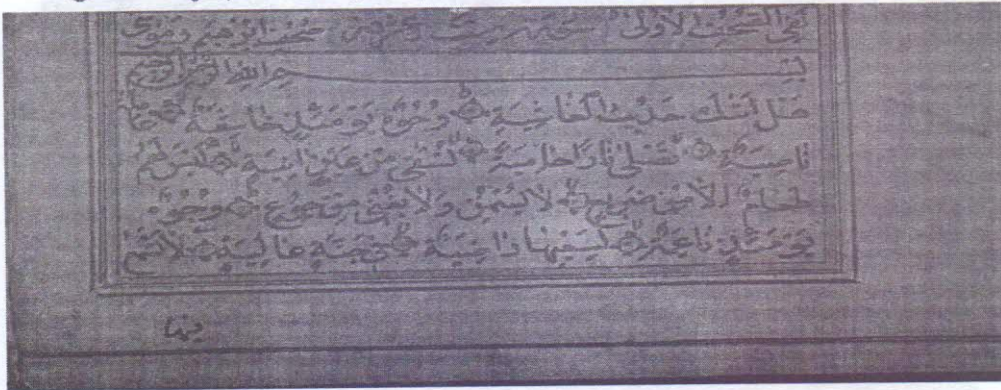 لفى الصحف الاولى صحف ابرهيم وموسى
بسم الله الرحمن الرحيم
هل اتىك حديث الغاشية وجوه يومئذ خاشعة
ناصبة تصلى نارا حامية تسقى من عين انية ليس لهم
طعام الا من ضريع لا يسمن ولا يغنى من جوع وجوه
يومئذ ناعمة لسعيها راضية فى جنة عالية لا تسمع
فيها